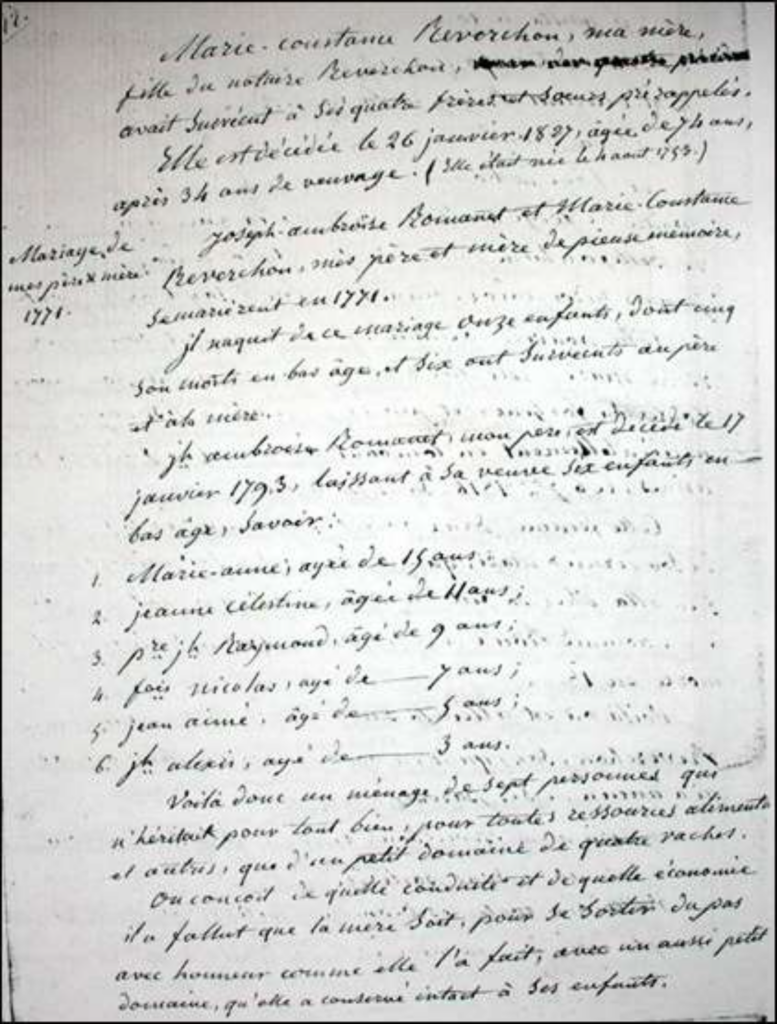 Marie-constance Reverchon, ma mère,
fille du notaire Reverchon,
avait survécut à ses quatre frères et soeurs prérappelés.
Elle est décédée le 26 janvier 1827, âgée de 74 ans,
après 34 ans de veuvage. (Elle était née le 4 aout 1753.)
Mariage de
mes père & mère
1771.
Joseph-ambroise Romanet et Marie-Constance
Reverchon, mes père et mère de pieuse mémoire,
se marièrent en 1771.
il naquit de ce mariage onze enfants, dont cinq
son morts en bas âge, et six ont survécuts au père
et à la mère.
jh ambroise Romanet, mon pere, est décédé le 17
janvier 1793, laissant à sa veuve six enfants en
bas âge, savoir:
1. Marie-anne, agée de 15 ans;
2. jeanne célestine, âgée de 11 ans;
3. pre jh Raymond, âgé de 9 ans;
4. fois nicolas, agé de — 7 ans;
5. jean aimé, âgé de — 5 ans;
6. jh alexis, agé de — 3 ans.
Voilà donc un ménage de sept personnes qui
n'héritait pour tout bien, pour toutes ressources aliments
et autres, que d'un petit domaine de quatre vaches.
On conçoit de quelle conduite et de quelle économie
il a fallut que la mère soit, pour se sortir du pas
avec honneur comme elle l'a fait, avec un aussi petit
domaine, qu'elle a conservé intact à ses enfants.